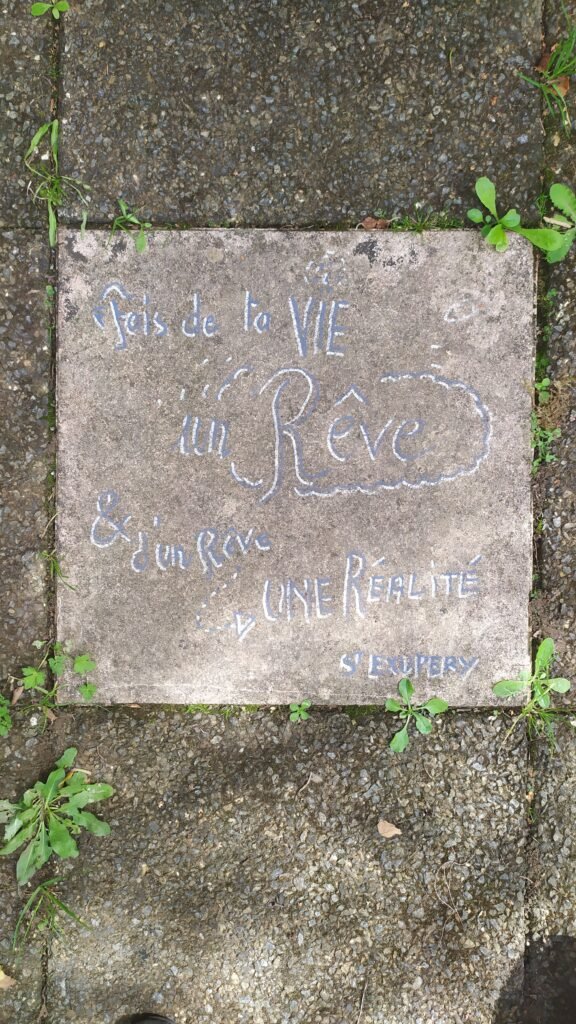 Fais de ta VIE
un Rêve
& d'un Rêve
UNE RÉALITÉ
St EXUPERY